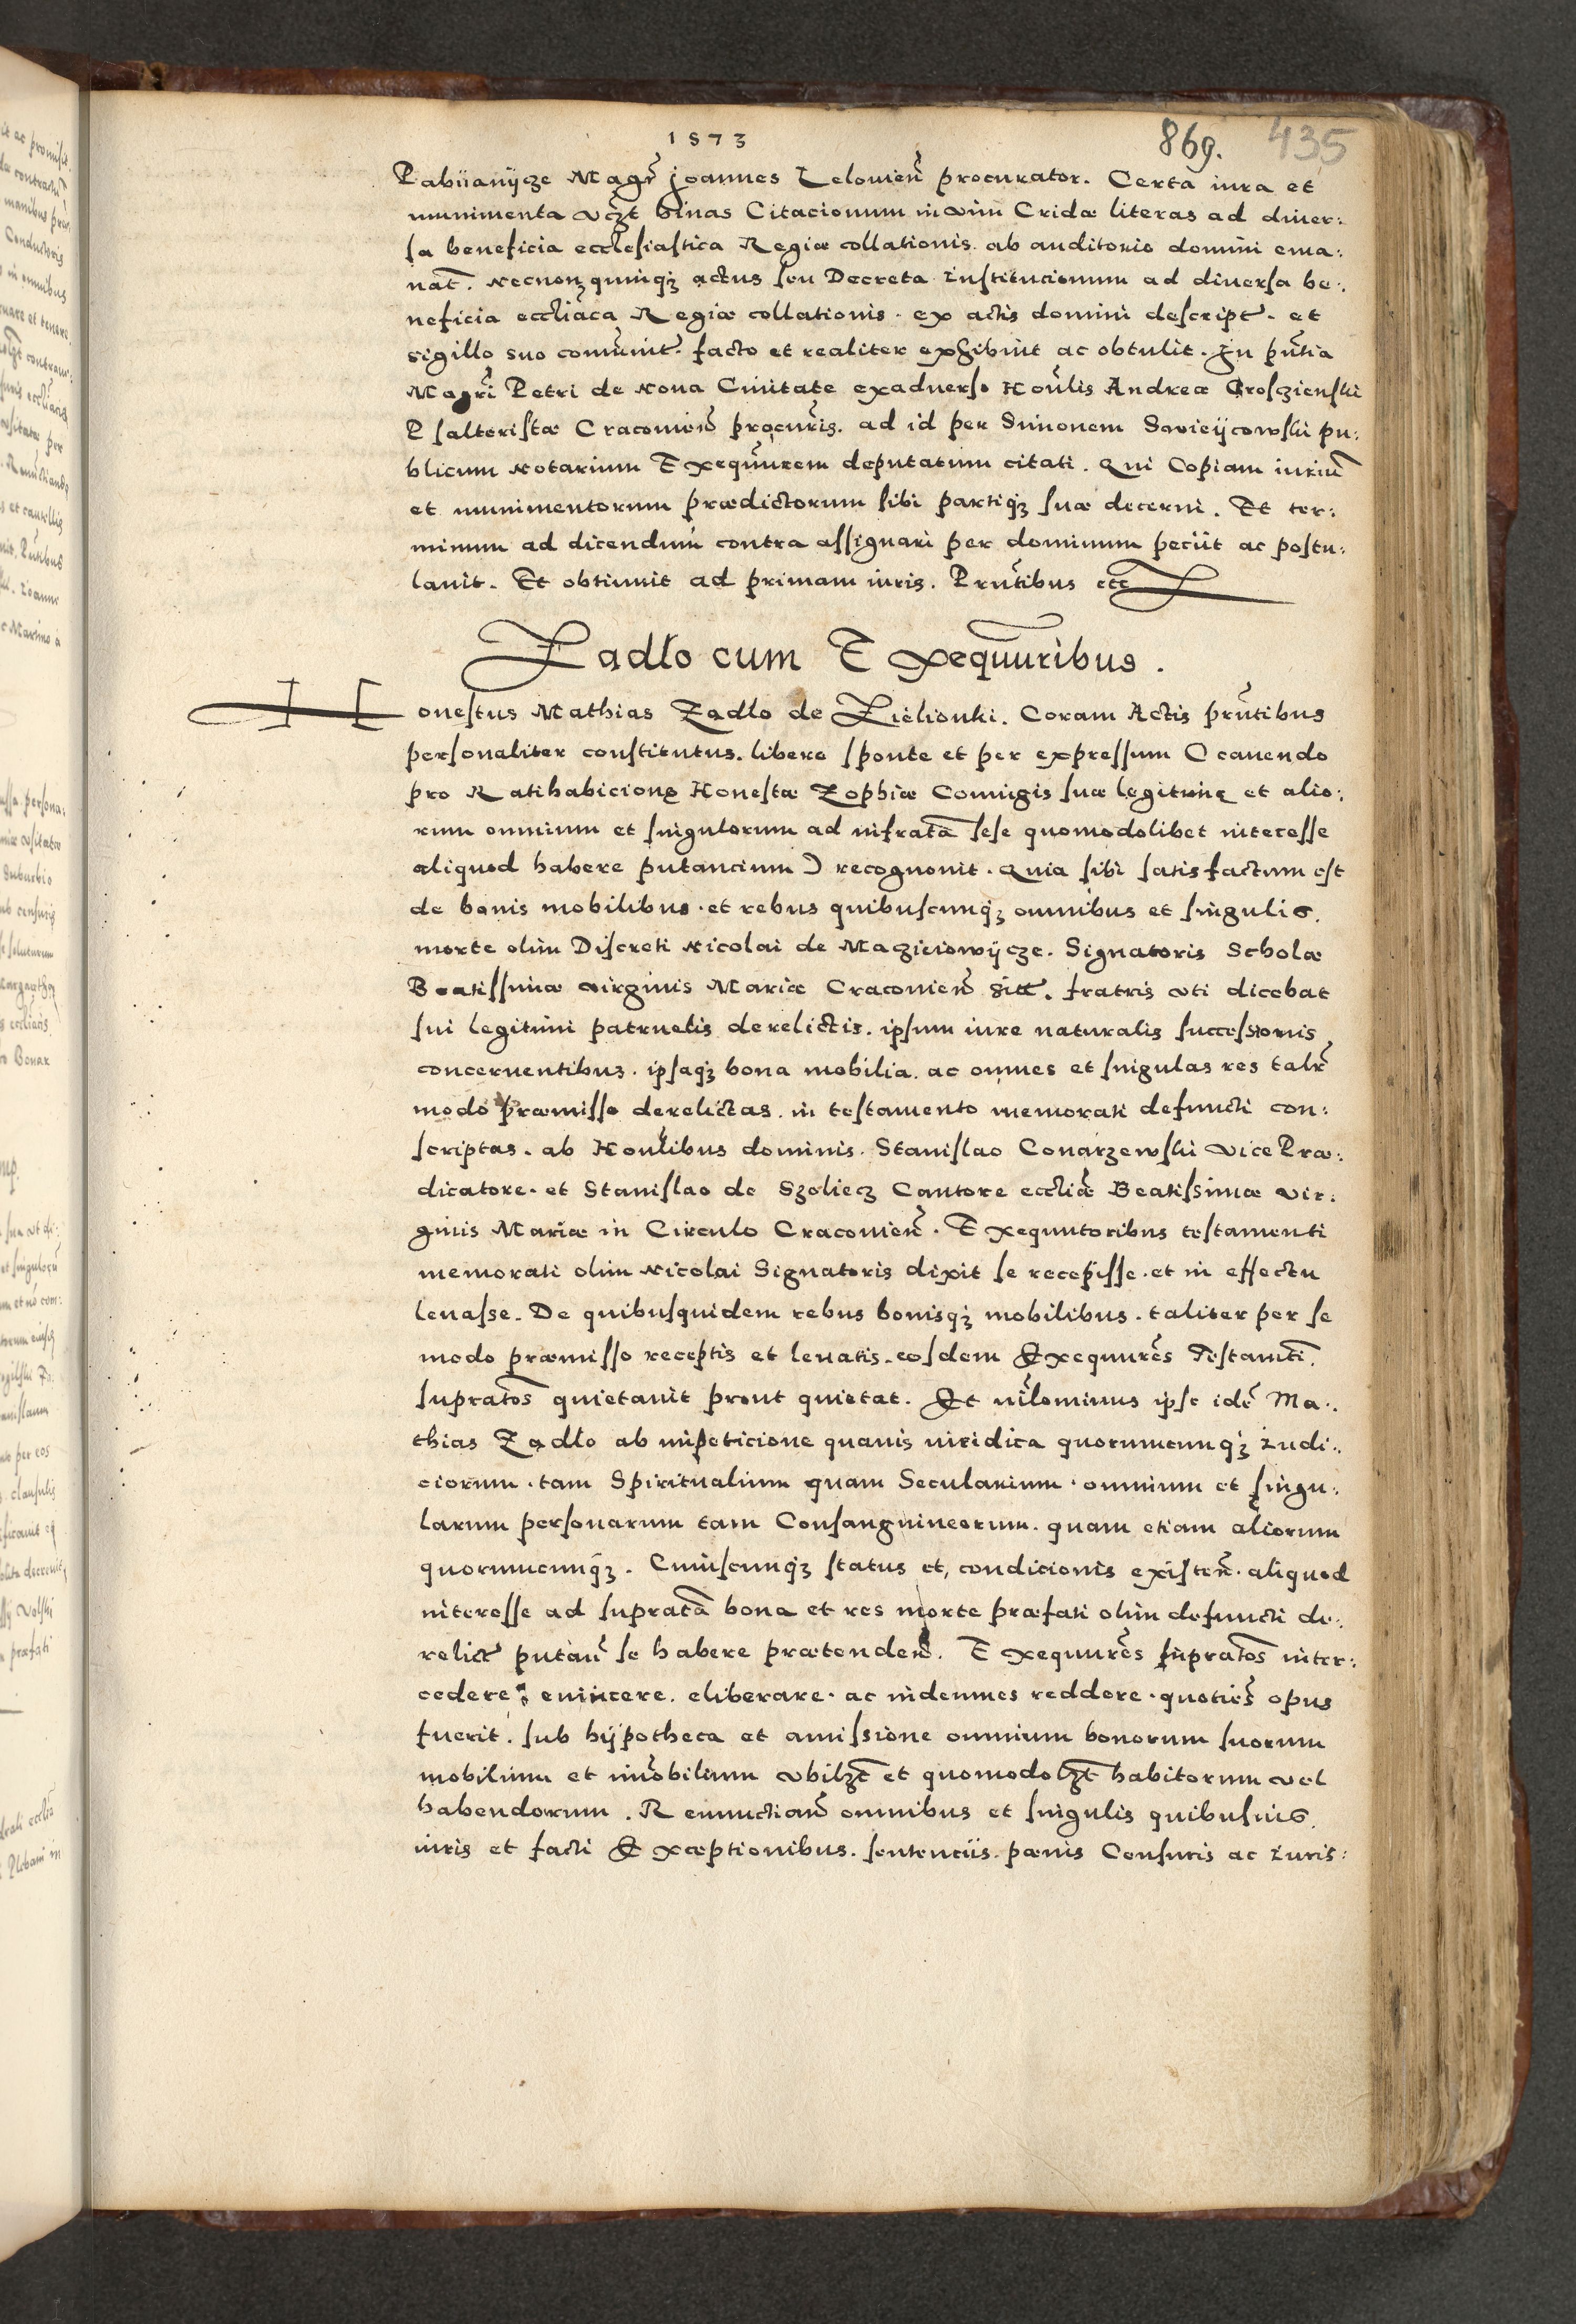 1573
869. 435
Pabiianÿcze Magr̃ Joannes Lelouieñ procurator. Certa iura et
munimenta vcƷt binas Citacionum in vim Cridæ literas ad diuer:
sa beneficia ecclesiastica Regiæ collationis. ab auditorio domini ema:
nat̃. Necnon quinqꝫ actus seu Decreta Institucionum ad diuersa be:
neficia eccl̃iaca Regiæ collationis. ex actis domini descript̃. et
sigillo suo com̃unit̃. facto et realiter exhibuit ac obtulit. In pñtia
Magr̃i Petri de Noua Ciuitate exaduerso Hoñlis Andreæ Grosczienski
Psalteristæ Cracouieñ procur̃is. ad id per Simonem Swieÿcowski pu:
blicum Notarium Exequũrem deputatum citati. Qui Copiam iuriũ
et munimentorum prædictorum sibi partiqꝫ suæ decerni. Et ter:
minum ad dicendum contra assignari per dominum peciit ac postu:
lauit. Et obtinuit ad primam iuris. Prñtibus etc̃
Zadlo cum Exequũribus.
Honestus Mathias Zadlo de Zielionki. Coram Actis prñtibus
personaliter constitutus. libere sponte et per expressum (cauendo
pro Ratihabicione Honestæ Zophiæ Coniugis suæ legitimę et alio:
rum omnium et singulorum ad infrat̃a sese quomodolibet interesse
aliquod habere putancium) recognouit. Quia sibi satisfactum est
de bonis mobilibus. et rebus quibuscunqꝫ omnibus et singulis.
morte olim Discreti Nicolai de Maczieiowÿcze. Signatoris Scholæ
Beatissimæ virginis Mariæ Cracouieñ sit̃. fratris vti dicebat
sui legitimi patruelis derelictis. ipsum iure naturalis successionis
concernentibus. ipsaqꝫ bona mobilia. ac omnes et singulas res talr̃
modo præmisso derelictas. in testamento memorati defuncti con:
scriptas. ab Hoñlibus dominis. Stanislao Conarzewski vice Præ:
dicatore. et Stanislao de Szoliecz Cantore eccl̃iæ Beatissimæ vir:
ginis Mariæ in Circulo Cracouieñ. Exequutoribus testamenti
memorati olim Nicolai Signatoris dixit se recepisse. et in effectu
leuasse. De quibusquidem rebus bonisqꝫ mobilibus. taliter per se
modo præmisso receptis et leuatis. eosdem Exequur̃es Testamt̃i.
suprat̃os quietauit prout quietat. Et nĩlominus ipse idẽ Ma:
thias Zadlo ab impeticione quauis iuridica quorumcunqꝫ Iudi:
ciorum. tam Spiritualium quam Secularium. omnium et singu:
larum personarum tam Consanguineorum. quam etiam aliorum
quorumcunqꝫ. Cuiuscunqꝫ status et condicionis existeñ. aliquod
interesse ad suprat̃a bona et res morte præfati olim defuncti de:
relict̃ putañ se habere prætendeñ. Exequur̃es suprat̃os inter:
cedere. euincere. eliberare. ac indemnes reddere. quoties̃ opus
fuerit. sub hÿpotheca et amissione omnium bonorum suorum
mobilium et im̃obilium vbilƷt et quomodolƷt habitorum vel
habendorum. Renunctiañ omnibus et singulis quibusuis.
iuris et facti Exceptionibus. sentenciis. pœnis Censuris ac Iuris: